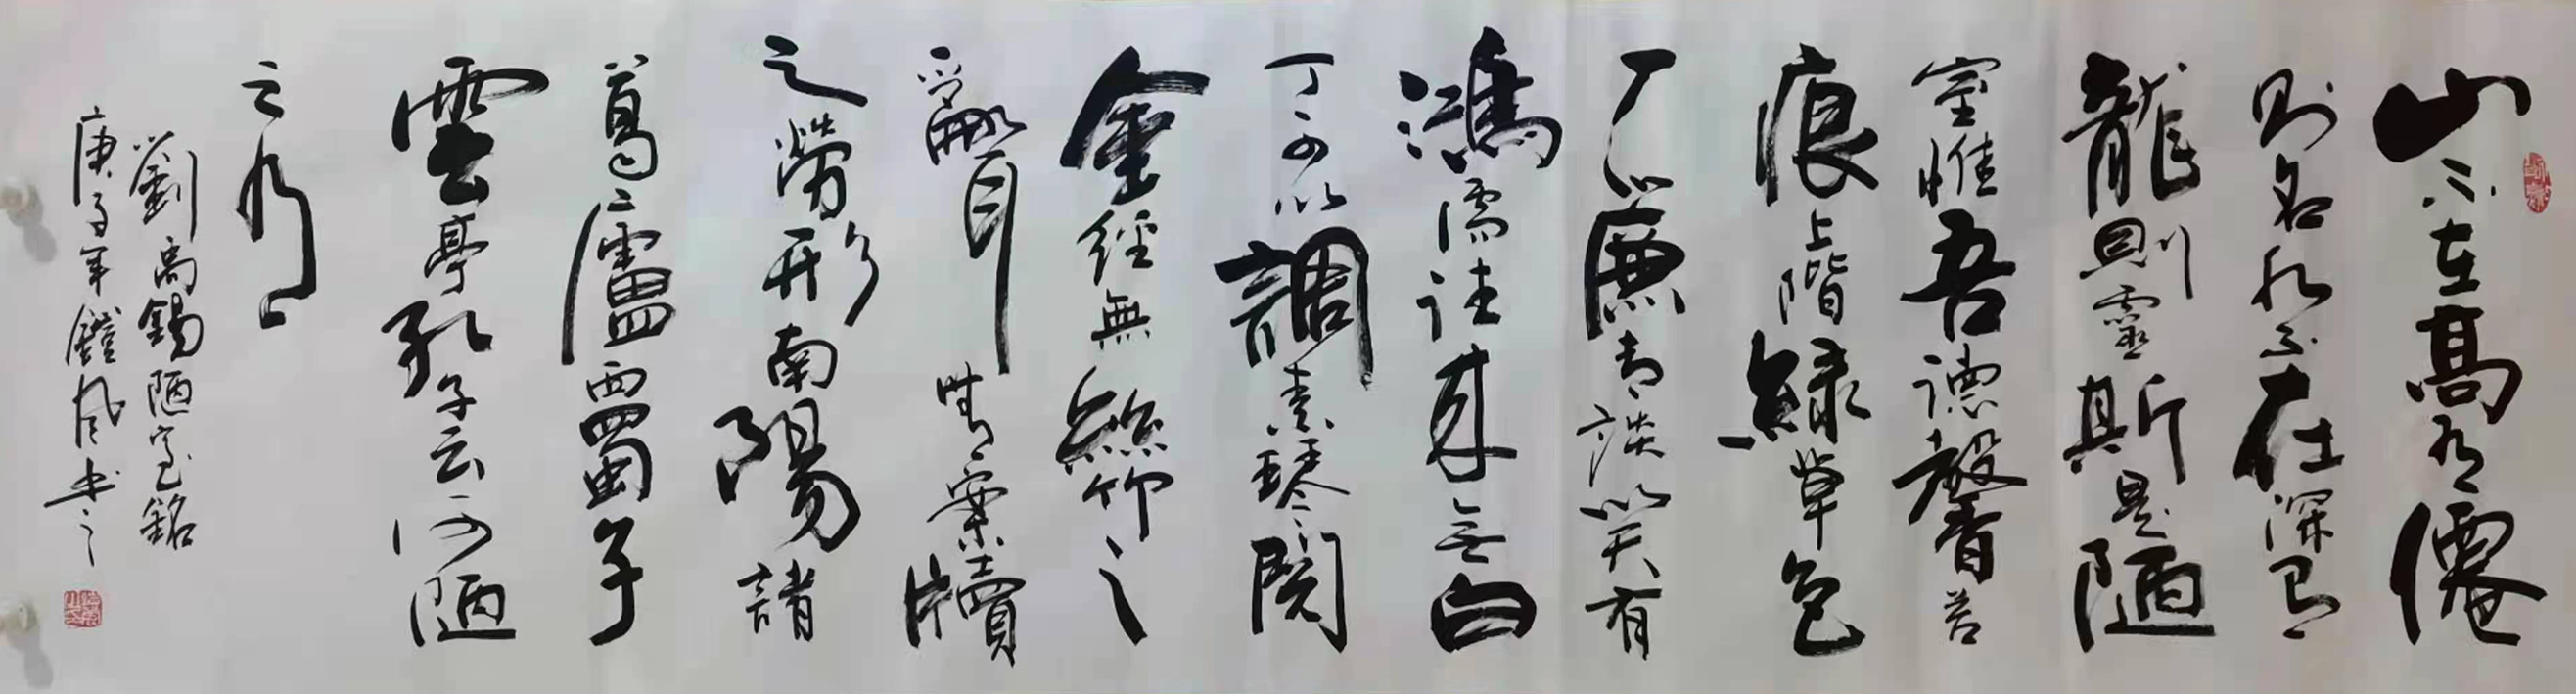 山不在高有僊
则名水不在深有
龍則靈斯是陋
室惟吾德馨苔
痕上階緑草色
入簾青談笑有
鴻儒往来无白
丁可以調素琴閲
金經無絲竹之
亂耳無案牘
之勞形南陽諸
葛廬西蜀子
雲亭孔子云何陋
之有
劉禹錫陋室銘
庚子年鎧風书之